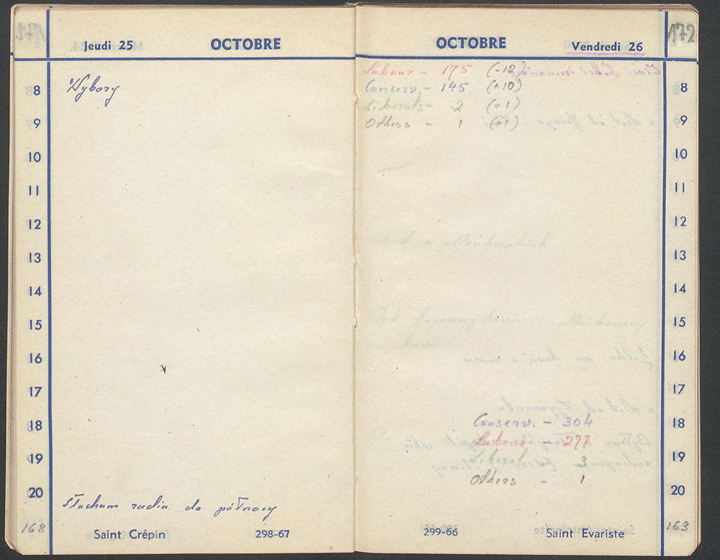 Jeudi 25
OCTOBRE
8
Wybory
9
10
11
12
13
14
15
16
17
18
19
20
słucham radia do północy
168
Saint Crépin
298-67
OCTOBRE
Vendredi 26
172
Labour - 175 (-12)
Conserv. - 145 (+10)
Liberals - 2 (+1)
Others - 1 (+1)
8
9
10
11
12
13
14
15
16
17
18
19
20
Conserv. - 304
Labour - 277
Liberal - 3
Others - 1
299-66
Saint Evariste
163